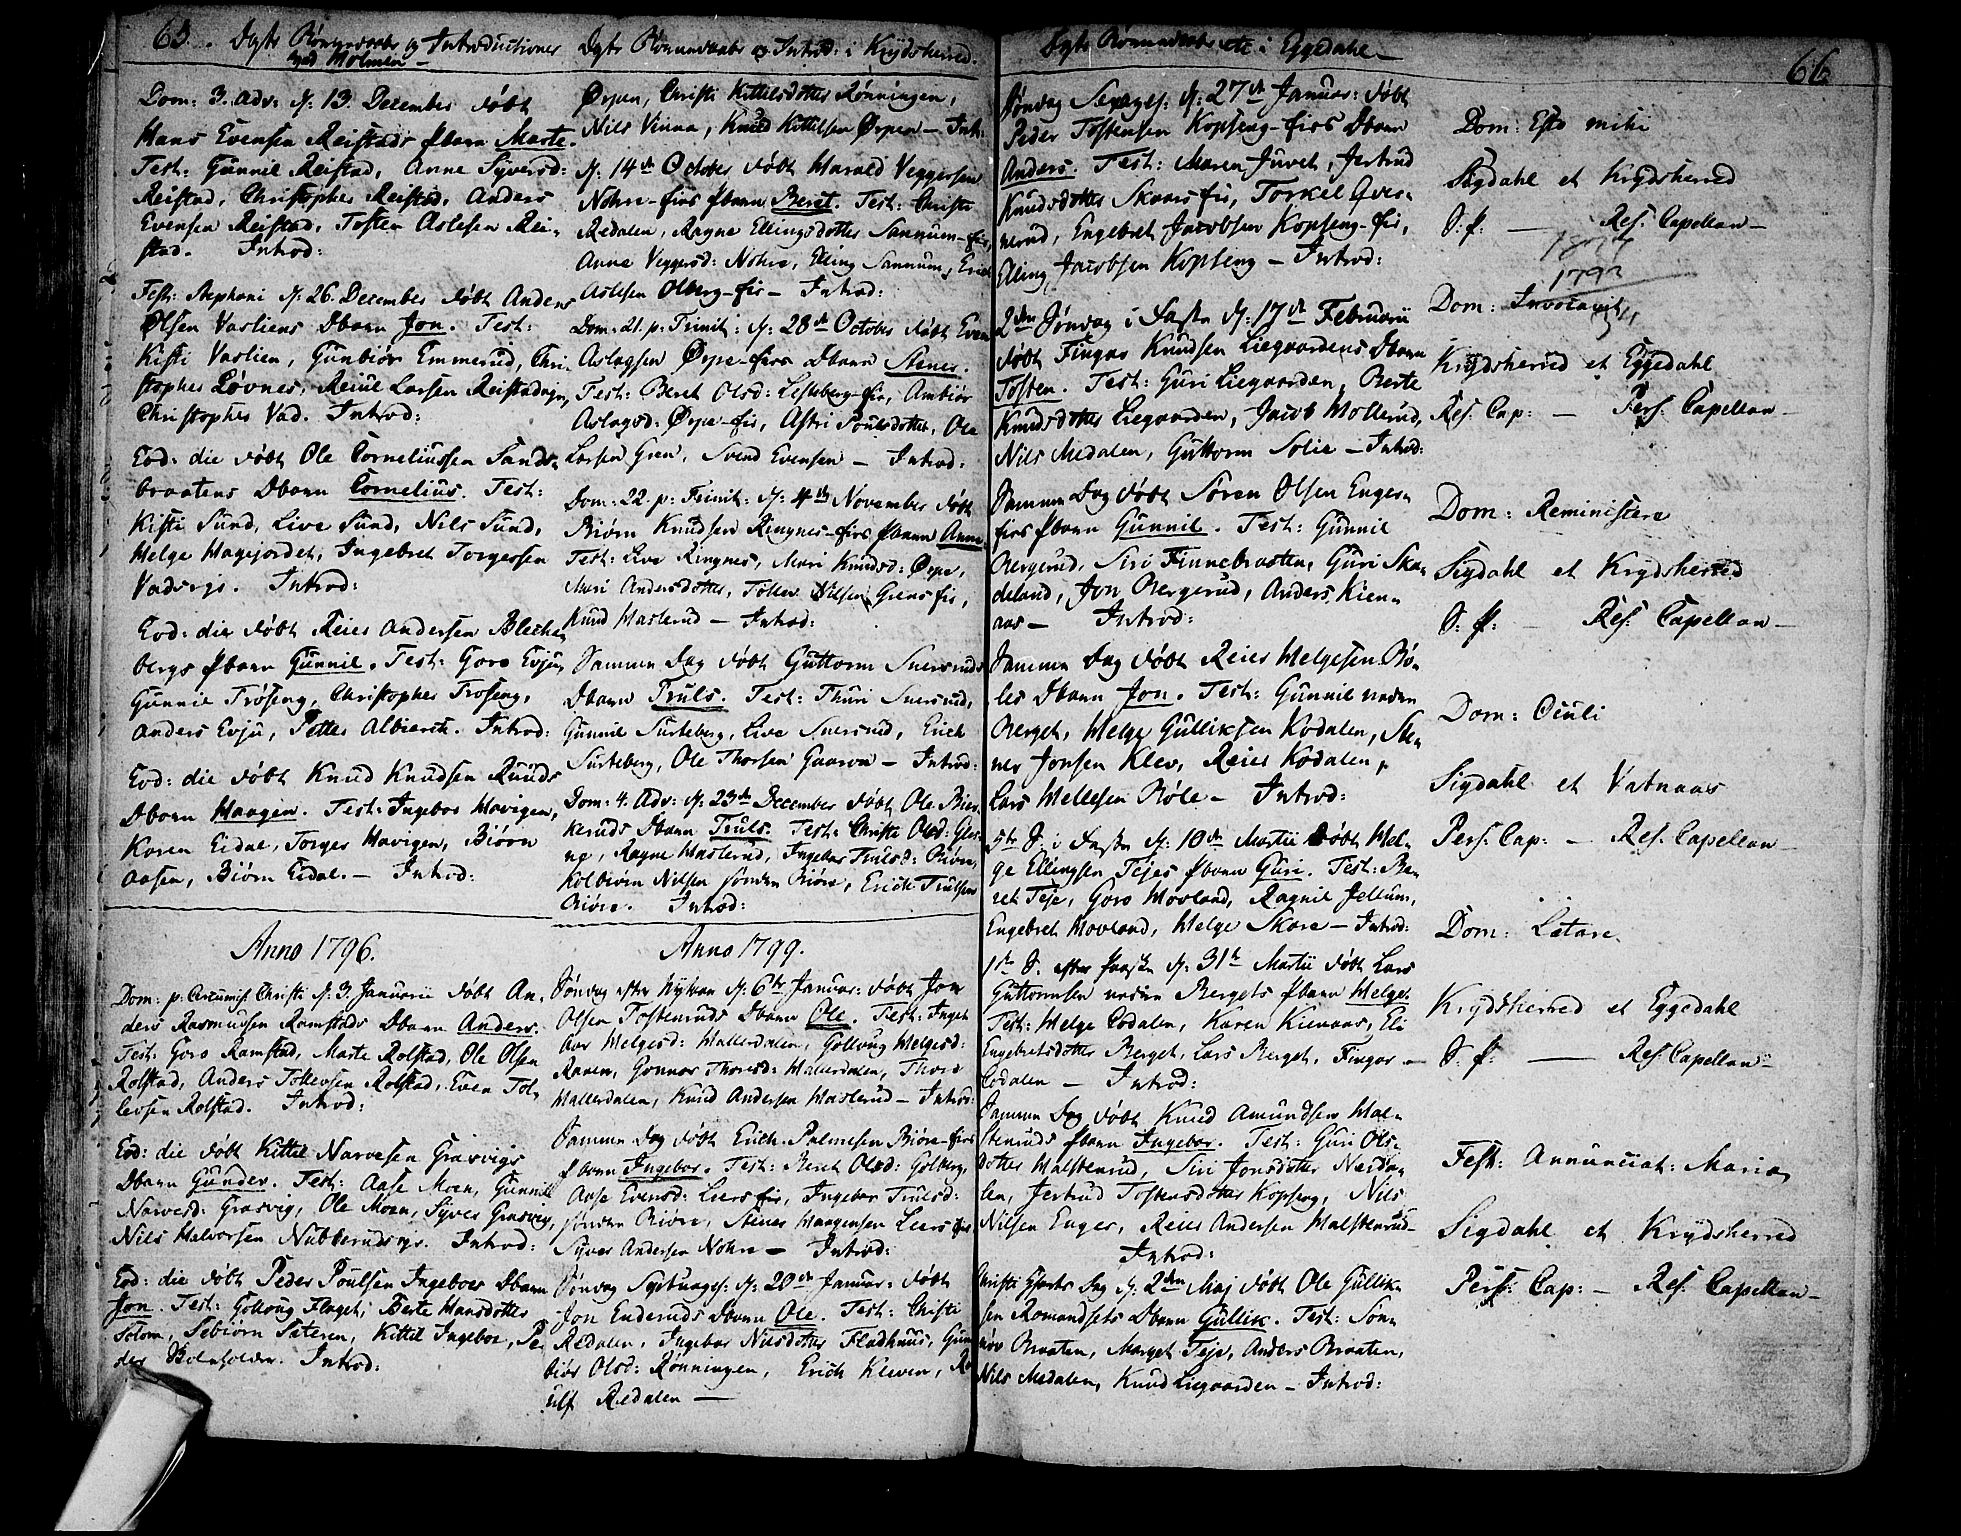 65. Døgte Børnenavne og Introductioner
ved Holmen —
Dom: 3. Adv: d: 13. December døbt
Hans Evensen Reistads Pbarn Marte.
Test: Gunnil Reistad, Anne Syversd:
Reistad, Christopher Reistad, Anders
Evensen Reistad, Tosten Aslesen Rei-
stad. Introd:
Fest: Stephani d: 26. December døbt Anders
Olsen Vasliens Dbarn Jon. Test:
Kisti Vaslien, Gunbiør Emmerud, Chri-
stopher Løvnes, Reiul Larsen Reistadeje,
Christopher Vad. Introd:
Eod: die døbt Ole Corneliussen Sands-
braatens Dbarn Cornelius. Test:
Kisti Sund, Live Sund, Nils Sund,
Helge Hagejordet, Ingebret Torgersen
Vadseje. Introd:
Eod: die døbt Reier Andersen Bleche-
bergs Pbarn Gunnil. Test: Goro Evju,
Gunnil Frøseng, Christopher Froseng,
Anders Evju, Petter Albierch. Introd:
Eod: die døbt Knud Knudsen Ruuds
Dbarn Haagen. Test: Ingebor Havigen,
Karen Eidal, Torger Havigen, Biørn
Aasen, Biørn Eidal. — Introd:
Anno 1796.
Dom: p. Circumcis. Christi d: 3. Januarii døbt An-
ders Rasmussen Ramstads Dbarn Anders.
Test: Goro Ramstad, Marte Rolstad, Ole Olsen
Rolstad, Anders Tollevsen Rolstad, Even Tol-
levsen Rolstad. Introd:
Eod: die døbt Kittil Narvesen Grasvigs
Dbarn Gunder. Test: Aase Moen, Gunnil
Narvesd: Grasvig, Ole Moen, Syver Grasvig,
Nils Halvorsen Nubberudseje. Introd:
Eod: die døbt Peder Poulsen Ingeboes Dbarn
Jon. Test: Gollaug Flaget, Berte Hansdotter
Solem, Tebiørn Sateren, Kittil Ingeboe, Pe-
der Bolnholdn: Introd:
Døgte Børnenavne og Introd: i Krydsherred.
Ørpen, Christi Kittilsdotter Rønningen,
Nils Vinna, Knud Kittilsen Ørpen — Int:
d: 14de October døbt Harald Veggersen
Nohre-eies Pbarn Beret. Test: Christi
Redalen, Ragne Ellingsdotter Sannum-eie,
Anne Veggersd: Nohre, Elling Sannum, Erich
Aslesen Olberg-eie — Introd:
Dom: 21. p: Trinit: d: 28de October døbt Even
Aslagsen Ørpe-eies Dbarn Stener.
Test: Beret Olsd: Lesteberg-eie, Ambiør
Aslagsd: Ørpe-eie, Astri Poulsdotter, Ole
Larsen Gren, Svend Evensen — Introd:
Dom: 22. p: Trinit: d: 4de November døbt
Biørn Knudsen Ringnes-eies Pbarn Anne.
Test: Live Ringnes, Mari Knudsd: Ørpe,
Mari Andersdotter, Tollev Nilsen Grenseie,
Knud Haslerud — Introd:
Samme Dag døbt Guttorm Snersruds
Dbarn Truls. Test: Thuri Snersrud,
Gunnil Surteberg, Live Snersrud, Erich
Surteberg, Ole Thorsen Gaaren — Introd:
Dom: 4. Adv: d: 23de December døbt Ole Bier-
keruds Dbarn Truls. Test: Christi Olsd: Glес-
ne, Ragne Haslerud, Ingebor Trulsd: Biøre,
Kolbiørn Nilsen søndre Biøre, Erich Trulsen
Biøre. Introd:
Anno 1799.
Søndag efter Nytaar d: 6te Januar: døbt Jon
Olsen Tostenruds Dbarn Ole. Test: Inge-
bor Helgesd: Hallerdalen, Gollaug Helgesd:
Raaen, Gonnor Thoresd: Hallerdalen, Thore
Hallerdalen, Knud Andersen Haslerud — Introd:
Samme Dag døbt Erich Palmesen Biøre-eies
Pbarn Ingebor. Test: Beret Olsd: Golberg,
Aase Evensd: Leerseie, Ingebor Trulsd:
søndre Biøre, Stener Haagensen Leerseie
Syver Andersen Nohre — Introd:
Søndag Septuages: d: 20de Januar: døbt
Jon Enderuds Dbarn Ole. Test: Christi
Redalen, Ingebor Nilsdotter Fladhuus, Gun-
biør Olsd: Rønningen, Erich Kleven, Ro-
ulf Redalen —
Døgte Børnenavne etc i Eggedahl —
Søndag Sexages: d: 27de Januar: døbt
Peder Tostensen Kopseng-eies Dbarn
Anders. Test: Maren Juvet, Jertrud
Knudsdotter Skaarseie, Torkel Qver-
nerud, Engebret Jacobsen Kopseng-eie,
Elling Jacobsen Kopseng — Introd:
2den Søndag i Faste d: 17de Februarii
døbt Fingar Knudsen Liegaardens Dbarn
Tosten. Test: Guri Liegaarden, Berte
Knudsdotter Liegaarden, Jacob Mollerud,
Nils Medalen, Guttorm Solie — Introd:
Samme Dag døbt Søren Olsen Enger-
eies Pbarn Gunnil. Test: Gunnil
Bergerud, Siri Finnebraaten, Guri Ska-
deland, Jon Bergerud, Anders Kien-
aas — Introd:
Samme Dag døbt Reier Helgesen Bø-
les Dbarn Jon. Test: Gunnil neden
Berget, Helge Gulliksen Kodalen, Ste-
ner Jonsen Klev, Reier Kodalen,
Lars Hellesen Bøle — Introd:
5te S: i Faste d: 10de Martii døbt Hel-
ge Ellingsen Tejes Pbarn Guri. Test: Be-
ret Teje, Goro Hovland, Ragnil Jellum,
Engebret Hovland, Helge Skare — Introd:
1te S. efter Paaske d: 31te Martii døbt Lars
Guttormsen neden Bergets Pbarn Helge.
Test: Helge Codalen, Karen Kienaas, Eli
Engebretsdotter Berget, Lars Berget, Fingar
Codalen — Introd:
Samme Dag døbt Knud Amundsen Hal-
stenruds Pbarn Ingebor. Test: Guri Ols-
dotter Halstenrud, Siri Jonsdotter Nerda-
len, Jertrud Tostensdotter Kopseng, Nils
Nilsen Enger, Reier Andersen Halstenrud —
Introd:
Christi Hf: Dag d: 2den Maj døbt Ole Gullik-
sen Romandsets Dbarn Gullik. Test: Søn-
nøv Braaten, Marget Teje, Anders Braaten,
Nils Medalen, Knud Liegaarden — Introd:
66
Dom: Esto mihi
Sigdahl et Krydsherred
S. P. — Res: Capellan —
1793
Dom: Invocavit
Krydsherred et Eggedahl
Res: Cap: — Pers: Capellan —
Dom: Reministere
Sigdahl et Krydsherred
S: P: — Res: Capellan —
Dom: Oculi
Sigdahl et Vatnaas
Pers: Cap: — Res: Capellan —
Dom: Lætare.
Krydsherred et Eggedahl
S: P: — Res: Capellan —
Fest: Annunciat: Mariæ
Sigdahl et Krydsherred
Pers: Cap: — Res: Capellan —